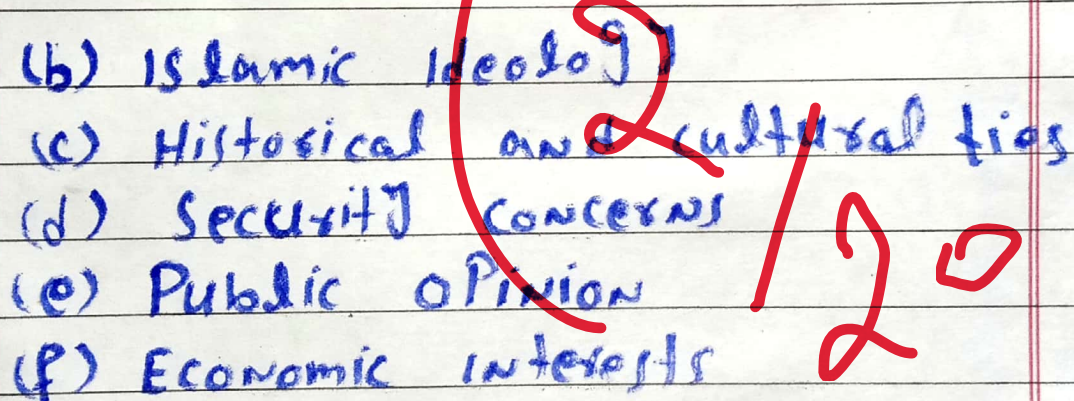 (b) Islamic Ideology
(c) Historical and cultural ties
(d) Security Concerns
(e) Public opinion
(f) Economic interests
2/20